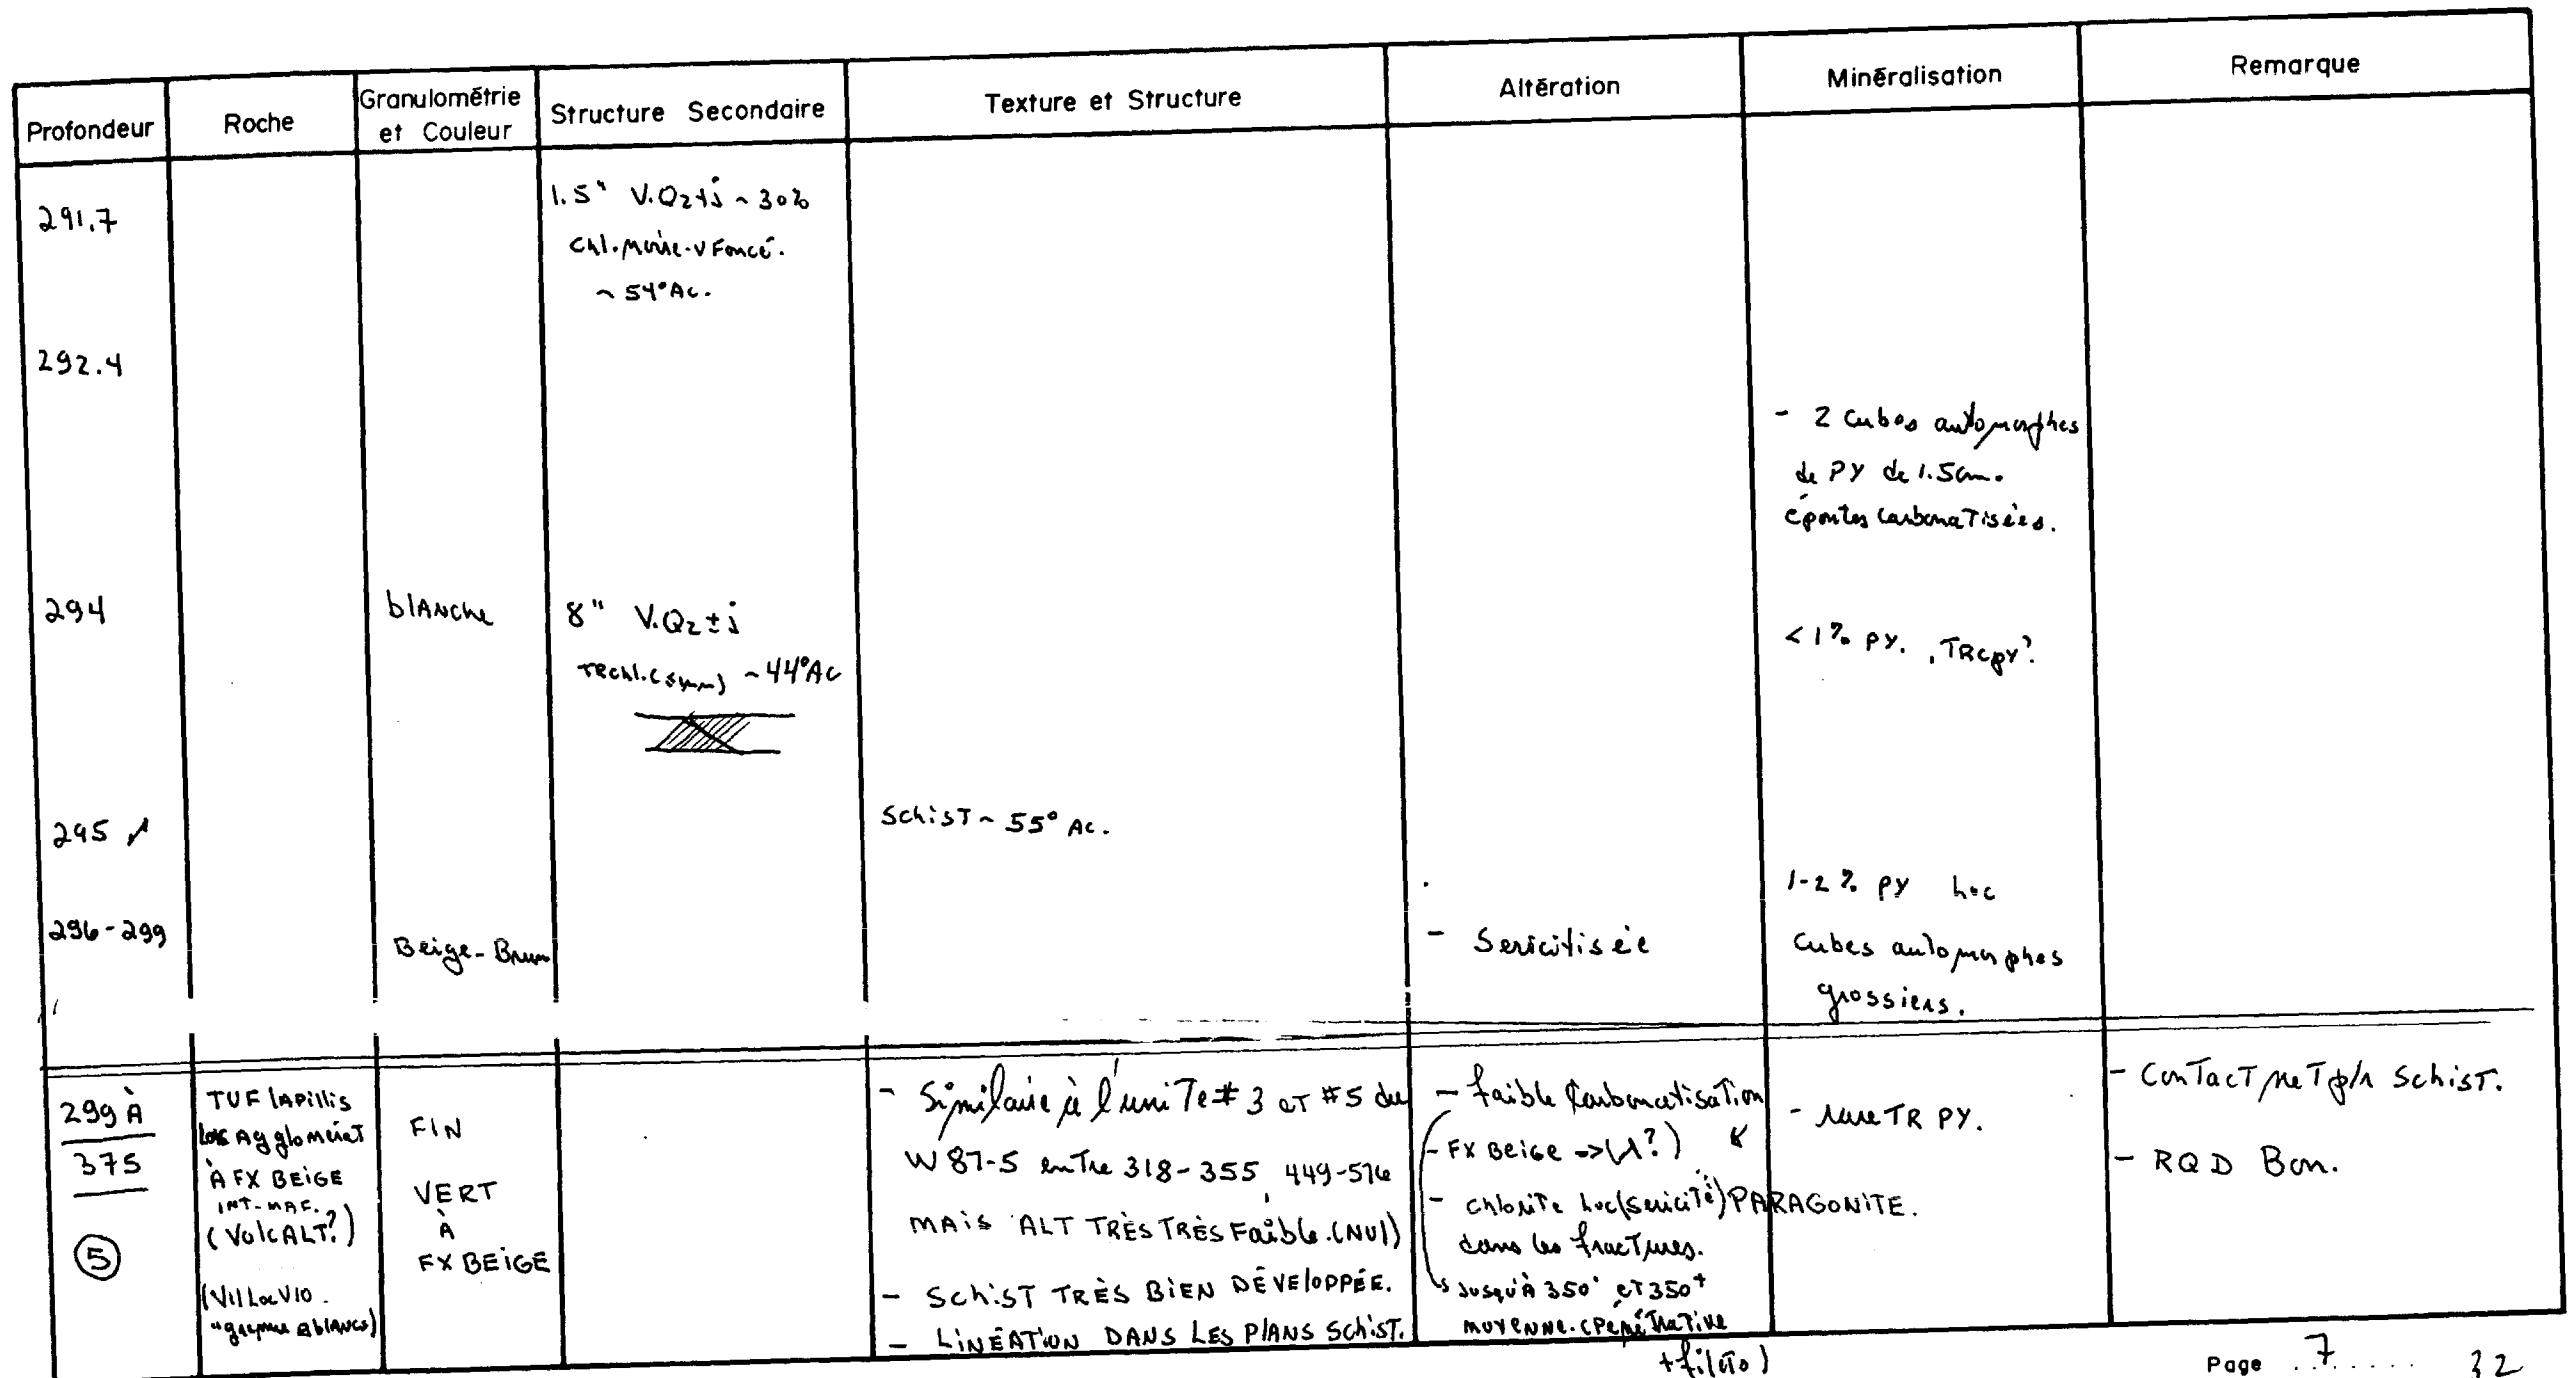 Profondeur
Roche
Granulométrie
et Couleur
Structure Secondaire
Texture et Structure
Altération
Minéralisation
Remarque
291.7
1.5" V.Qz+j ~ 30%
Chl. -V Foncé.
~ 54° Ac.
292.4
- 2 cubes automorphes
de PY de 1.5cm.
épontes carbonaTisées.
294
blANche
8" V.Qz±j
TRchl. (5mm) ~44°AC
<1% PY. , TRcpy?
295
SchisT ~ 55° Ac.
296-299
Beige-Brun
- Sericitisée
1-2% PY loc
cubes automorphes
grossiers.
299 À
375
5
TUF lAPillis
loc Agglomérat
À FX BEIGE
INT-MAF.
(VolcALT?)
(V11 Loc V10
blANcs)
FIN
VERT
À
FX BEIGE
- Similaire à l'uniTe #3 eT #5 du
W 87-5 enTre 318-355, 449-576
MAiS ALT TRÈS TRÈS FAible. (NUl)
- SchiST TRÈS BiEN DÉVEloPPÉE.
- LINÉATION DANS LES PlANS SchiST.
- faible CarbonatisaTion
- FX Beige => (λ?)
- chloriTe loc (sericite) PARAGONiTE.
dans les fracTures.
JUSQU'À 350' eT 350+
moyenne. (PénéTraTive
+ filets)
- rare TR PY.
- ConTacT neT p/r SchisT.
- RQD Bon.
Page 7
32